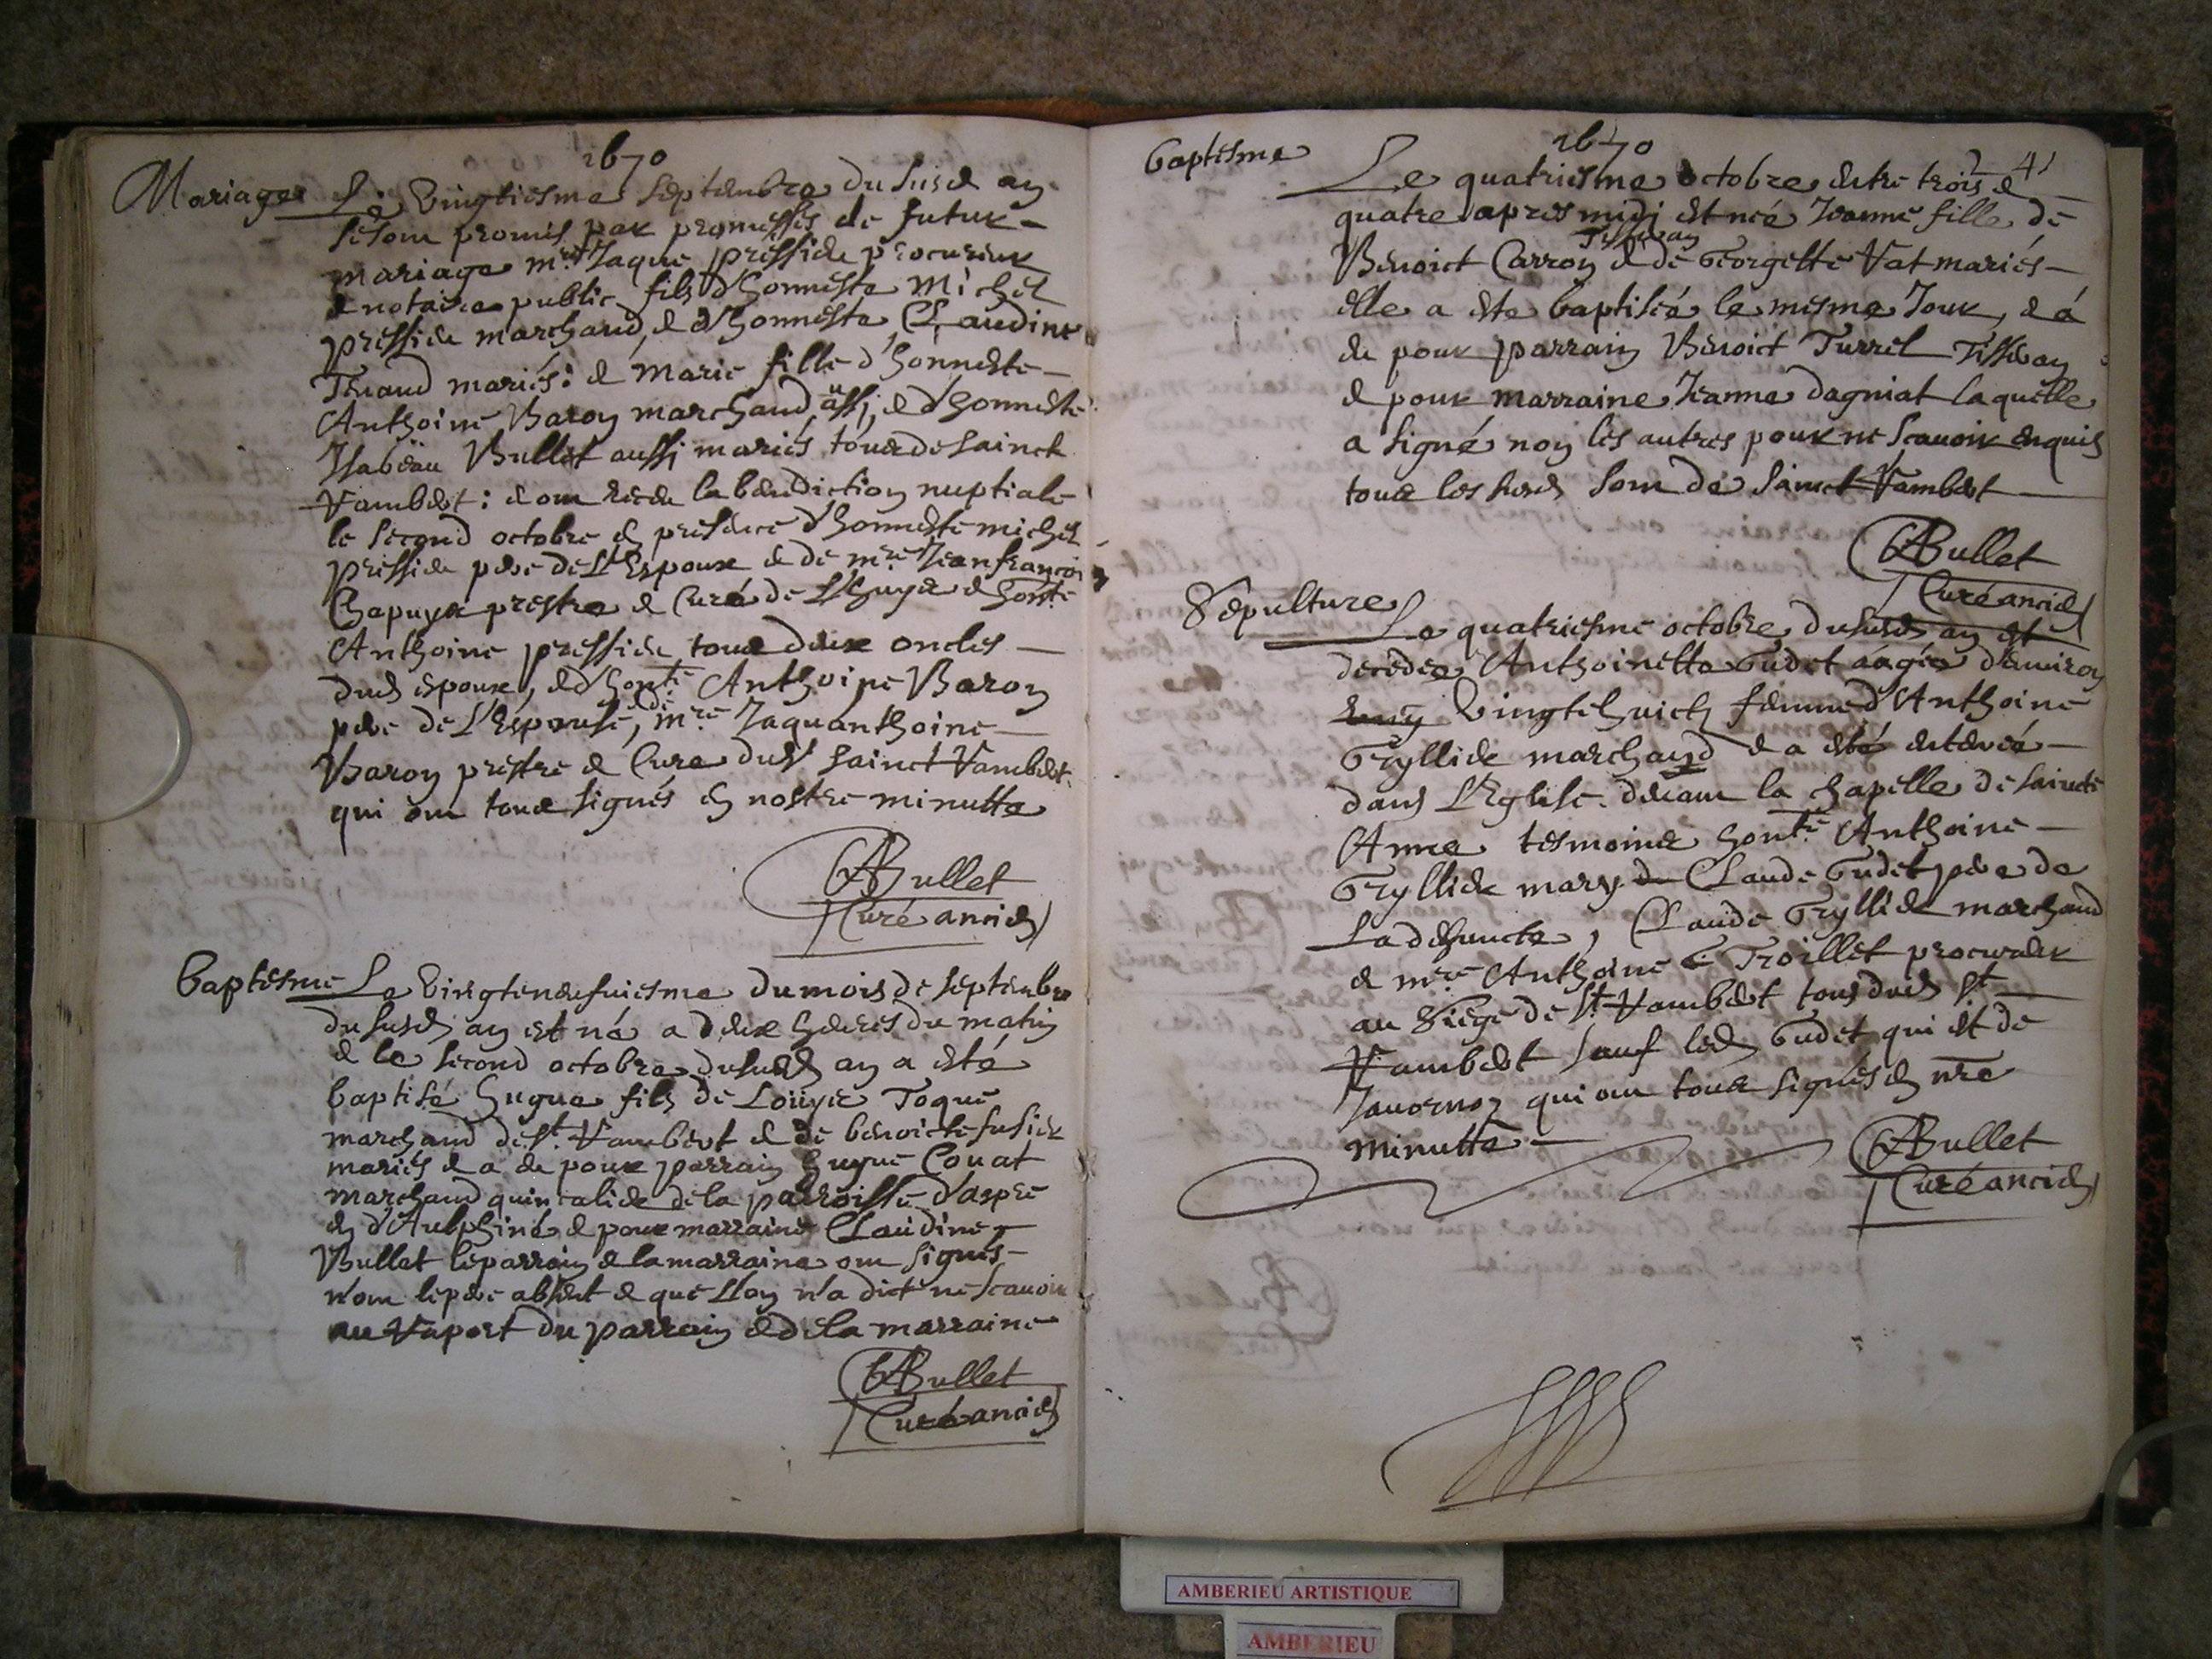 1670
Mariage Le Vingtiesme Septembre du susd an
se sont promis par promesses de futur
mariage mre Jaque presside procureur
et notaire public fils d'honneste Michel
presside marchand, et d'honneste Claudine
Tenand mariés: et Marie fille d'honneste
Anthoine Baron marchand aussi, et d'honneste
Isabeau Bullet aussi mariés tous de sainct
Rambert: et ont receu la benediction nuptiale
le second octobre en presence d'honneste michel
presside pere de L'Espoux et de mre Jean françois
Chapuys prestre et Curé de L'huys et honte
Anthoine presside tous deux oncles
dud espoux, et d'honte Anthoine Baron
pere de L'Espouse, et de mre Jaquanthoine
Baron prestre et Cure dud sainct Rambert
qui ont tous signés en nostre minutte
ABullet
Curé ancien
Baptesme Le Vingtneufuiesme du mois de septembre
du susd an est né a deux heures du matin
et le second octobre du susd an a esté
baptisé hugue fils de Louys Toque
marchand de st Rambert et de benoicte fusier
mariés et a eu pour parrain hugue Couat
marchand quincalier de la parroisse d'aspre
en d'Aulphiné et pour marraine Claudine
Bullet le parrain et la marraine ont signés
n'ont le pere absent et que l'on n'a dict ne scauoir
au Raport du parrain et de la marraine
ABullet
Curé ancien
1670
41
baptesme Le quatriesme octobre entre trois et
quatre apres midi est neé Jeanne fille de
Tisseran
Benoict Carron et de Georgette Vat mariés
elle a este baptiseé le mesme Jour, et a
eu pour parrain Benoict Turrel Tisseran
et pour marraine Jeanne dagniat laquelle
a signé non les autres pour ne scauoir enquis
tous les susd sont de sainct Rambert
ABullet
Curé ancien
Sepulture Le quatriesme octobre du susd an est
decedeé Anthoinette Gudet aageé d'enuiron
Vingtehuict femme d'Anthoine
Gryllier marchand et a esté enterreé
dans L'Eglise deuant la chapelle de saincte
Anne tesmoins honte Anthoine
Gryllier mary Claude Gudet pere de
La defuncte, Claude Gryllier marchand
et mre Anthoine Troillet procureur
au Siege de st Rambert tous dud st
Rambert sauf led Gudet qui est de
Jauornoz qui ont tous signés en nre
minutte
ABullet
Curé ancien
AMBERIEU ARTISTIQUE
AMBERIEU